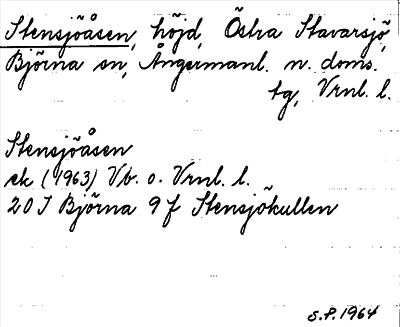 Stensjöåsen, höjd, Östra Stavarsjö,
Björna sn, Ångermanl. n. doms.
tg, Vrnl. l.
Stensjöåsen
ek (1963) Vb. o. Vrnl. l.
20 J Björna 9 f Stensjökullen
S.P. 1964